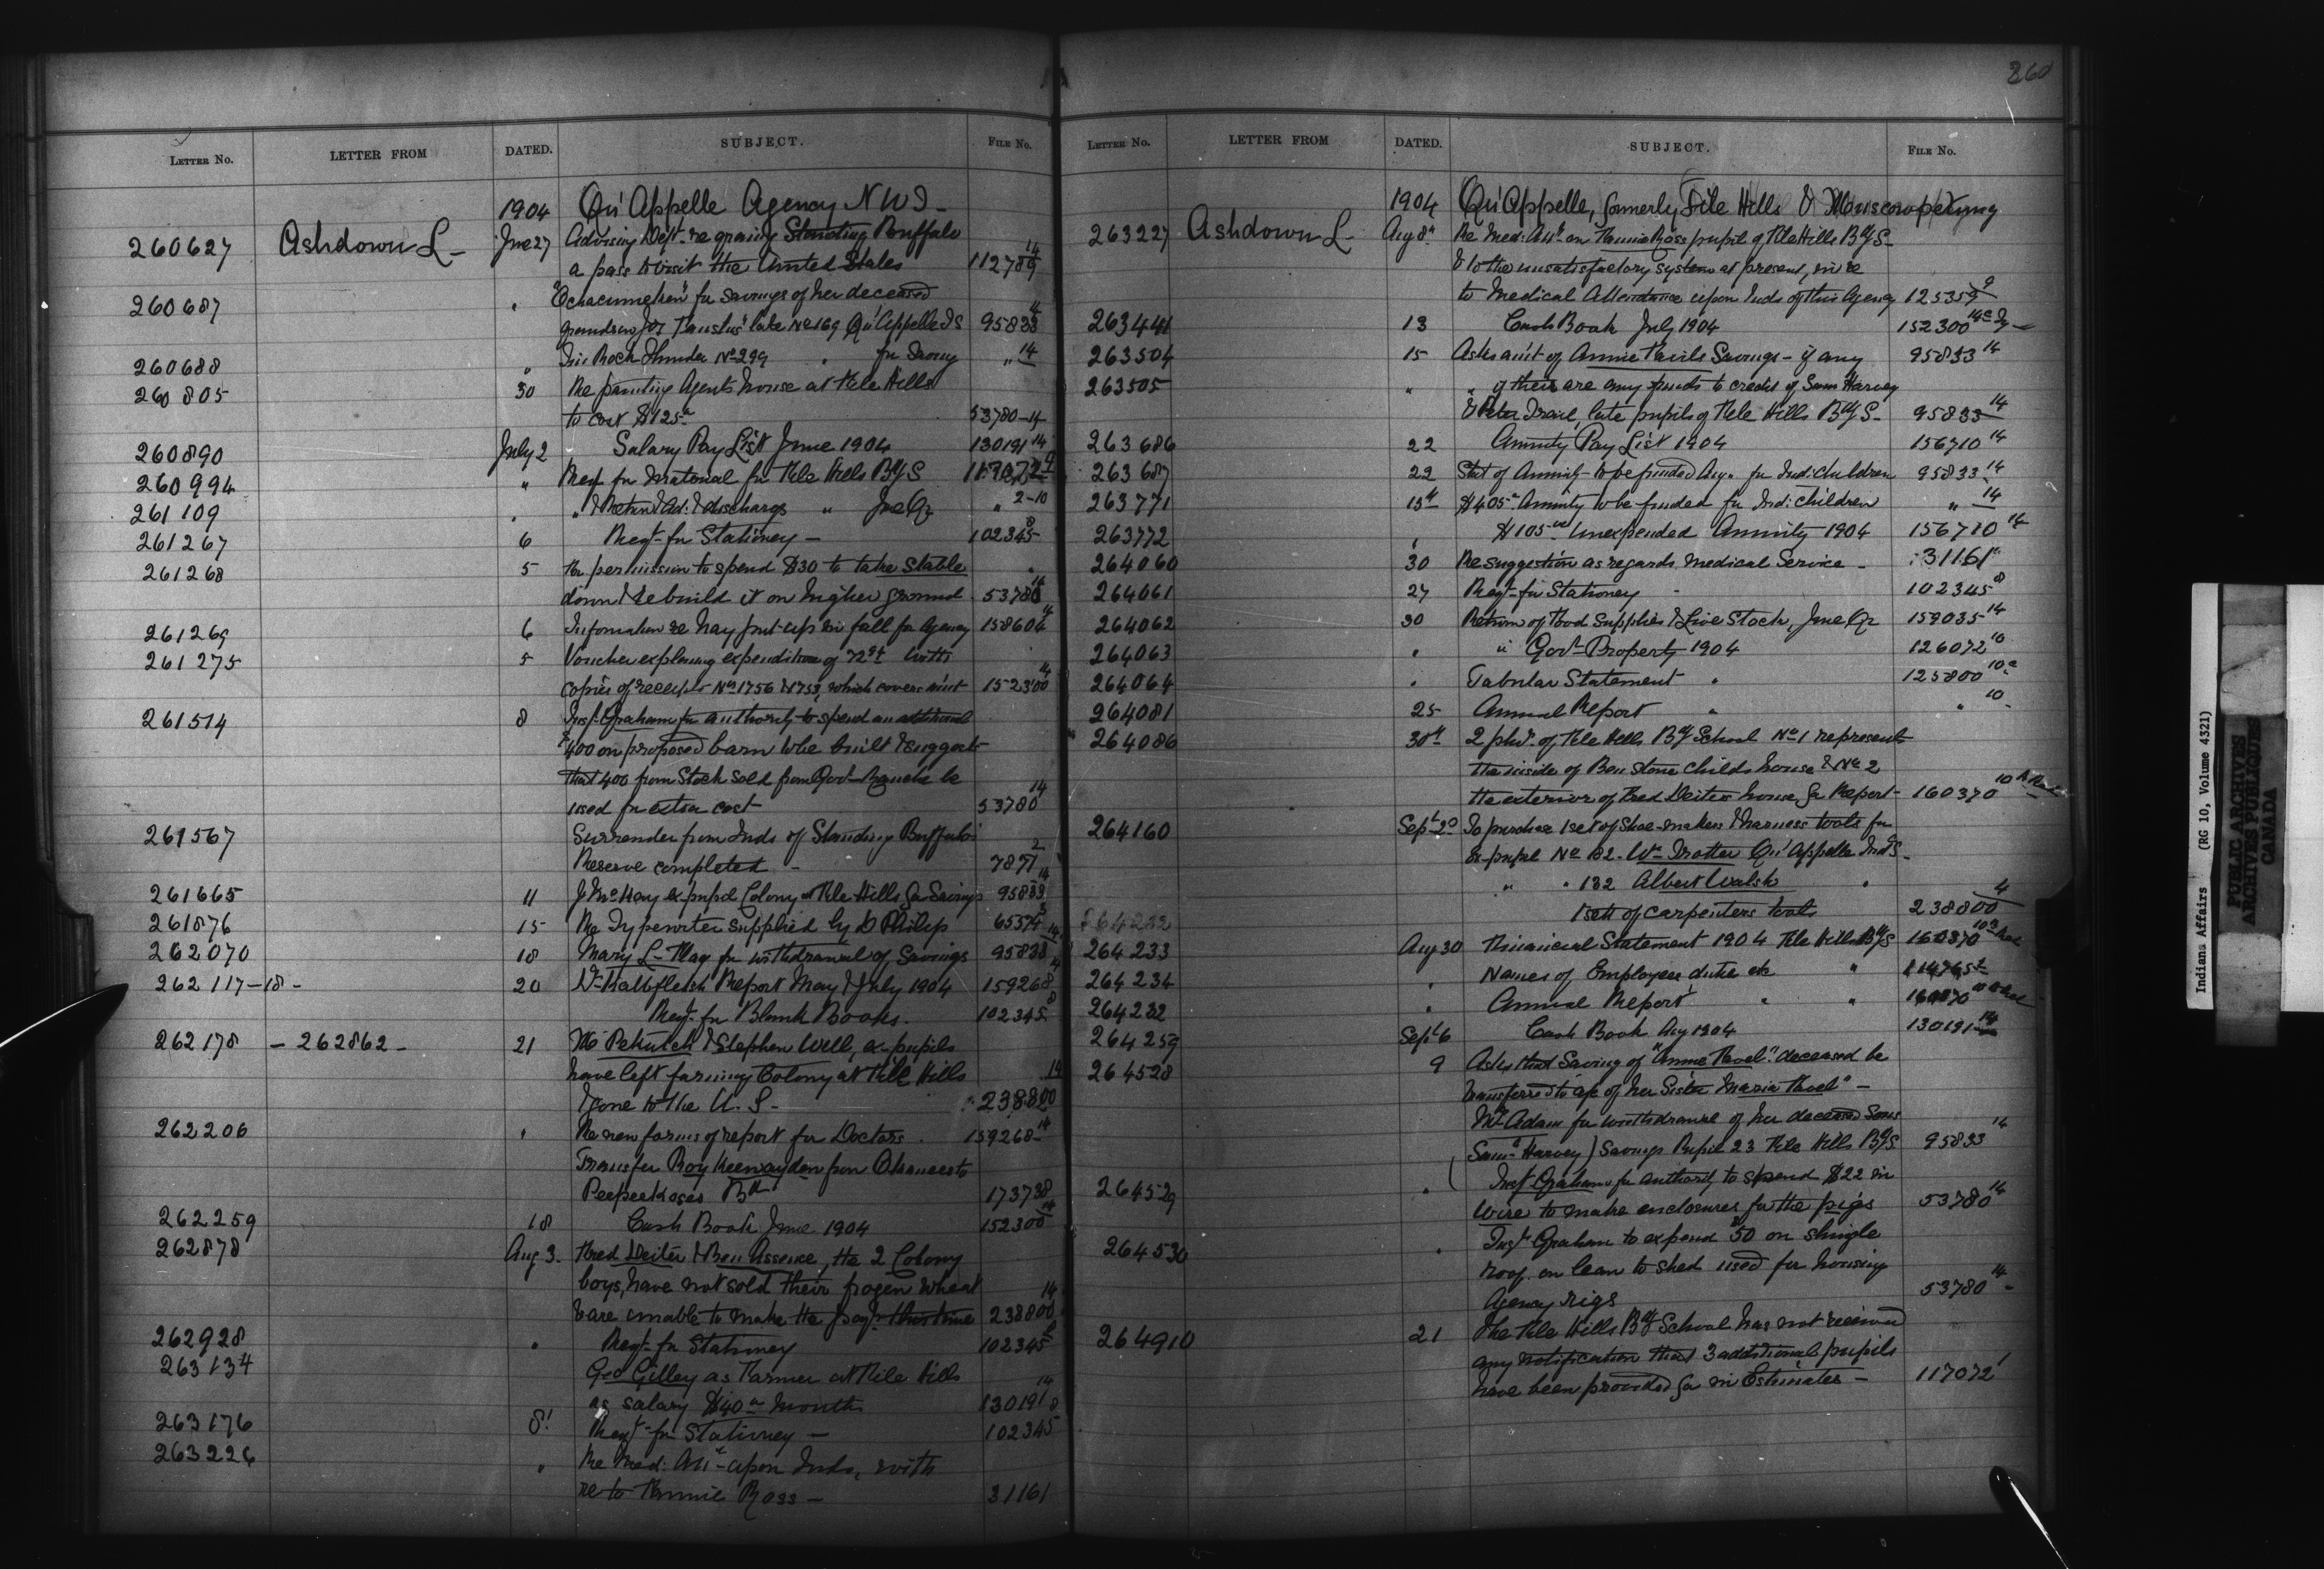 260
LETTER NO. LETTER FROM DATED. SUBJECT. FILE No.
1904 Qu'Appelle Agency N W T -
260627 Ashdown L - June 27 Advising Dept re granting Standing Buffalo
a pass to visit the United States 112789 14
260687 " for savings of her deceased
grandson late No 169 Qu'Appelle I S 95833 14
260688 " Thunder No 299 " for " 14
260805 30 Re painting Agents house at File Hills
to cost $125 53780-14
260890 July 2 Salary Pay List June 1904 130191 14
260994 " Reqt for material for File Hills Bdg S 117072
261109 " " & Return Ad: & discharge " June Qr " 2-10
261267 6 Reqt for Stationery - 102345 8
261268 5 For permission to spend $30 to take stable
down & rebuild it on higher ground 53780 14
261269 6 Information re hay put up in fall for Agency 158604 14
261275 5 Voucher explaining expenditure of 72 with
copies of receipts Nos 1756 & 1753, which covers amt 152300 14
261514 8 Insp. Graham for authority to spend an additional
$400 on proposed barn to be built & suggests
that 400 from Stock sold from Govt Ranche be
used for extra cost 53780 14
261567 Surrender from Inds of Standing Buffalo's
Reserve completed - 7871 2
261665 11 ex-pupil Colony at File Hills for Savings 95833 14
261876 15 Re Typewriter supplied by D Philip 65374
262070 18 Mary L. for withdrawal of Savings 95833 14
262117-18- 20 Dr Kalbfleisch Report May & July 1904 159268
Reqt for Blank Books. 102345 8
262178 - 262862 - 21 & Stephen Will, ex-pupils
have left farming Colony at File Hills 14
& gone to the U. S. - 238800
262206 " Re new forms of report for Doctors. 159268-14
Transfer Roy Keewaydin from to
Peepeekeesis Bd 173738
262259 18 Cash Book June 1904 152300 14
262878 Aug 3. Fred Deiter & Ben Assenee, the 2 Colony
boys, have not sold their frozen wheat 14
& are unable to make the payt this time 238800
262928 " Reqt for Stationery 102345 8
263134 Geo Gilley as Farmer at File Hills 14
as salary $40 a month 130191
263176 8 Reqt for Stationery - 102345 8
263226 " Re Med: Att - upon Inds, with
re to Fannie Ross - 31161
LETTER NO. LETTER FROM DATED. SUBJECT. FILE No.
1904 Qu'Appelle, formerly File Hills & Muscowpetung
263227 Ashdown L - Aug 8 Re Med: Att on Fannie Ross pupil of File Hills Bdg S -
& to the unsatisfactory system at present, in re
to Medical Attendance upon Inds of this Agency 125359
263441 13 Cash Book July 1904 152300
263504 15 Asks amt of Annie Savings - if any 95833 14
263505 " " if there are any funds to credit of Sam Harvey
& Peter late pupils of File Hills Bdg S - 95833 14
263686 22 Annuity Pay List 1904 156710 14
263687 22 Stat of Annuity to be funded for Ind: children 95833 14
263771 15th $405 Annuity to be funded for Ind: children " 14
263772 " $105 Unexpended Annuity 1904 156710 14
264060 30 Re suggestion as regards Medical Service - 31161
264061 27 Reqt for Stationery - 102345 8
264062 30 Return of Food Supplies & Live Stock, June Qr 159035 14
264063 " " Govt Property 1904 126072 10
264064 " Tabular Statement " 125800 10
264081 25 Annual Report " " 10
264086 30th 2 phs. of File Hills Bdg School No 1 represents
the inside of Ben Stone childs house & No 2
the exterior of Fred Deiter house, for Report - 160370 10
264160 Sept 20 To purchase 1 set of shoe-makers & harness tools for
Ex-pupil No 182. Wm Trotter Qu'Appelle Ind S -
" " 132 Albert Walsh "
1 set of carpenters tools 238800 4
264232
264233 Aug 30 Financial Statement 1904 File Hills Bdg S 160370 10
264234 " Names of Employees, duties etc "
264232 " Annual Report " "
264259 Sept 6 Cash Book Aug 1904 130191-14
264528 9 Asks that Saving of "Annie " deceased be
transferred to a/c of her Sister Maria -
Mrs Adam for withdrawal of her deceased Sons
Saml Harvey) Savings Pupil 23 File Hills Bdg S 95833 14
264529 " Inspt Graham for authority to spend $22 in
wire to make enclosures for the pigs 53780 14
264530 " Inspt Graham to expend $50 on shingle
roof on lean to shed used for housing
Agency rigs 53780 14
264910 21 The File Hills Bdg School has not received
any notification that 3 additional pupils
have been provided for in Estimates - 117072 1
Indians Affairs (RG 10, Volume 4321)
PUBLIC ARCHIVES
ARCHIVES PUBLIQUES
CANADA